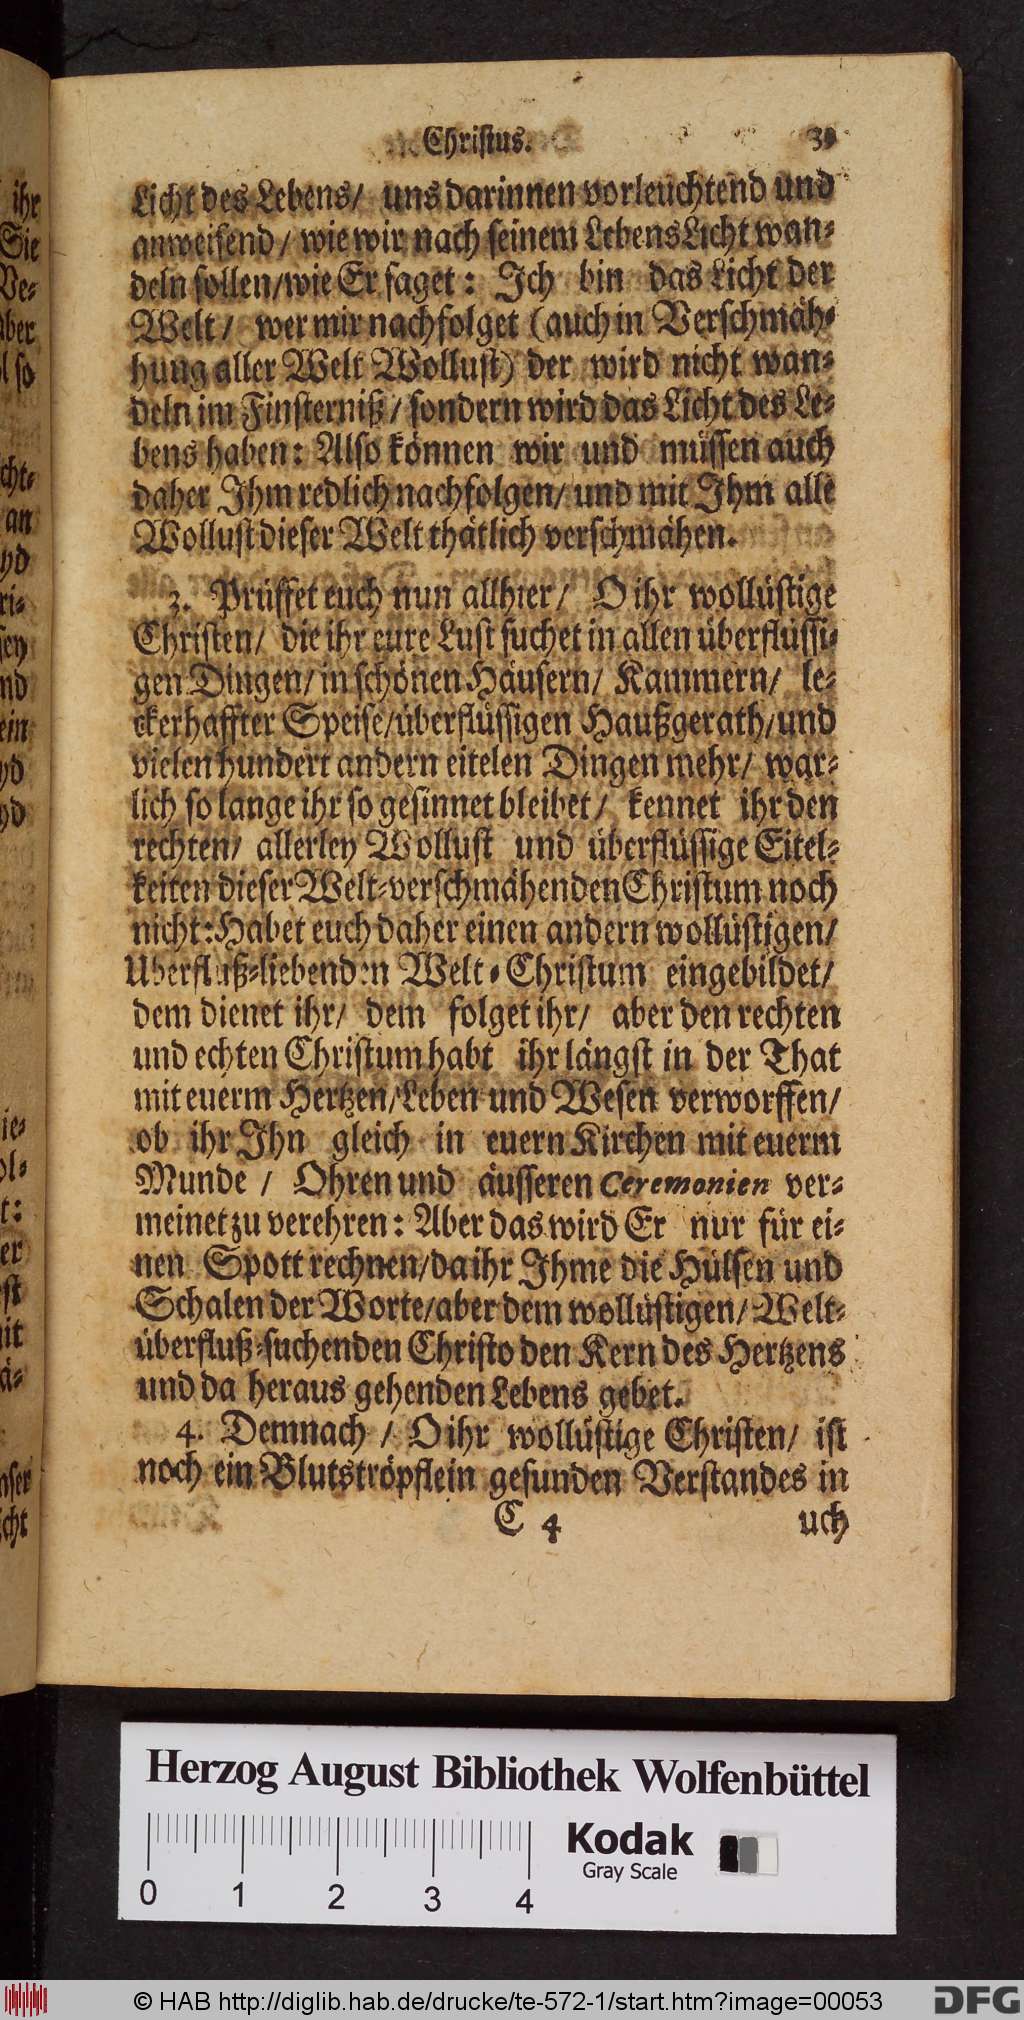 Christus. 39
Licht des Lebens/ uns darinnen vorleuchtend und
anweisend/ wie wir nach seinem Lebens Licht wan-
deln sollen/ wie Er saget: Ich bin das Licht der
Welt/ wer mir nachfolget (auch in Verschmäh-
hung aller Welt Wollust) der wird nicht wan-
deln im Finsterniß/ sondern wird das Licht des Le-
bens haben: Also können wir und müssen auch
daher Ihm redlich nachfolgen/ und mit Ihm alle
Wollust dieser Welt thätlich verschmähen.
3. Prüffet euch nun allhier/ O ihr wollüstige
Christen/ die ihr eure Lust suchet in allen überflüssi-
gen Dingen/ in schönen Häusern/ Kammern/ le-
ckerhaffter Speise/ überflüssigen Haußgerath/ und
vielen hundert andern eitelen Dingen mehr/ war-
lich so lange ihr so gesinnet bleibet/ kennet ihr den
rechten/ allerley Wollust und überflüssige Eitel-
keiten dieser Welt-verschmähenden Christum noch
nicht: Habet euch daher einen andern wollüstigen/
Uberfluß-liebenden Welt-Christum eingebildet/
dem dienet ihr/ dem folget ihr/ aber den rechten
und echten Christum habt ihr längst in der That
mit euerm Hertzen/ Leben und Wesen verworffen/
ob ihr Ihn gleich in euern Kirchen mit euerm
Munde / Ohren und äusseren Ceremonien ver-
meinet zu verehren: Aber das wird Er nur für ei-
nen Spott rechnen/ da ihr Ihme die Hülsen und
Schalen der Worte/ aber dem wollüstigen/ Welt-
überfluß-suchenden Christo den Kern des Hertzens
und da heraus gehenden Lebens gebet.
4. Demnach / O ihr wollüstige Christen/ ist
noch ein Blutströpflein gesunden Verstandes in
C 4 uch
Herzog August Bibliothek Wolfenbüttel
Kodak
Gray Scale
0 1 2 3 4
© HAB http://diglib.hab.de/drucke/te-572-1/start.htm?image=00053
DFG